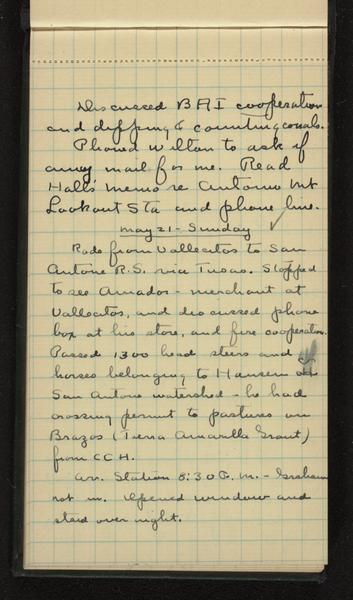 Discussed BAI cooperation
and dipping & counting corrals.
Phoned Wilton to ask if
any mail for me. Read
Hall's memo re Antonio Mt
Lookout Sta and phone line.
May 21 - Sunday
Rode from Vallecitos to San
Antone R.S. via Tusas. Stopped
to see Amador - merchant at
Vallecitos, and discussed phone
box at his store, and fire cooperation.
Passed 1300 head steers and
horses belonging to Hansen on
San Antone watershed - he had
crossing permit to pastures on
Brazos (Tierra Amarilla Grant)
from CCH.
Arr. Station 8:30 P.M. - Graham
not in. Opened window and
staid over night.